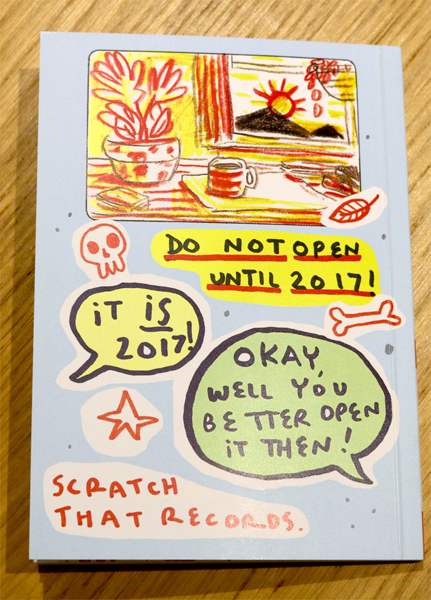 DO NOT OPEN
UNTIL 2017!
iT iS
2017!
OKAY,
WELL YOU
BETTER OPEN
iT THEN!
SCRATCH
THAT RECORDS.